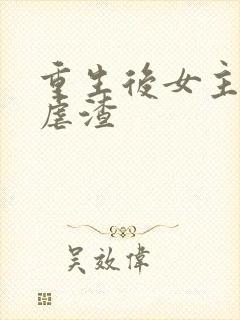 重生後女主
虐渣
吴效偉